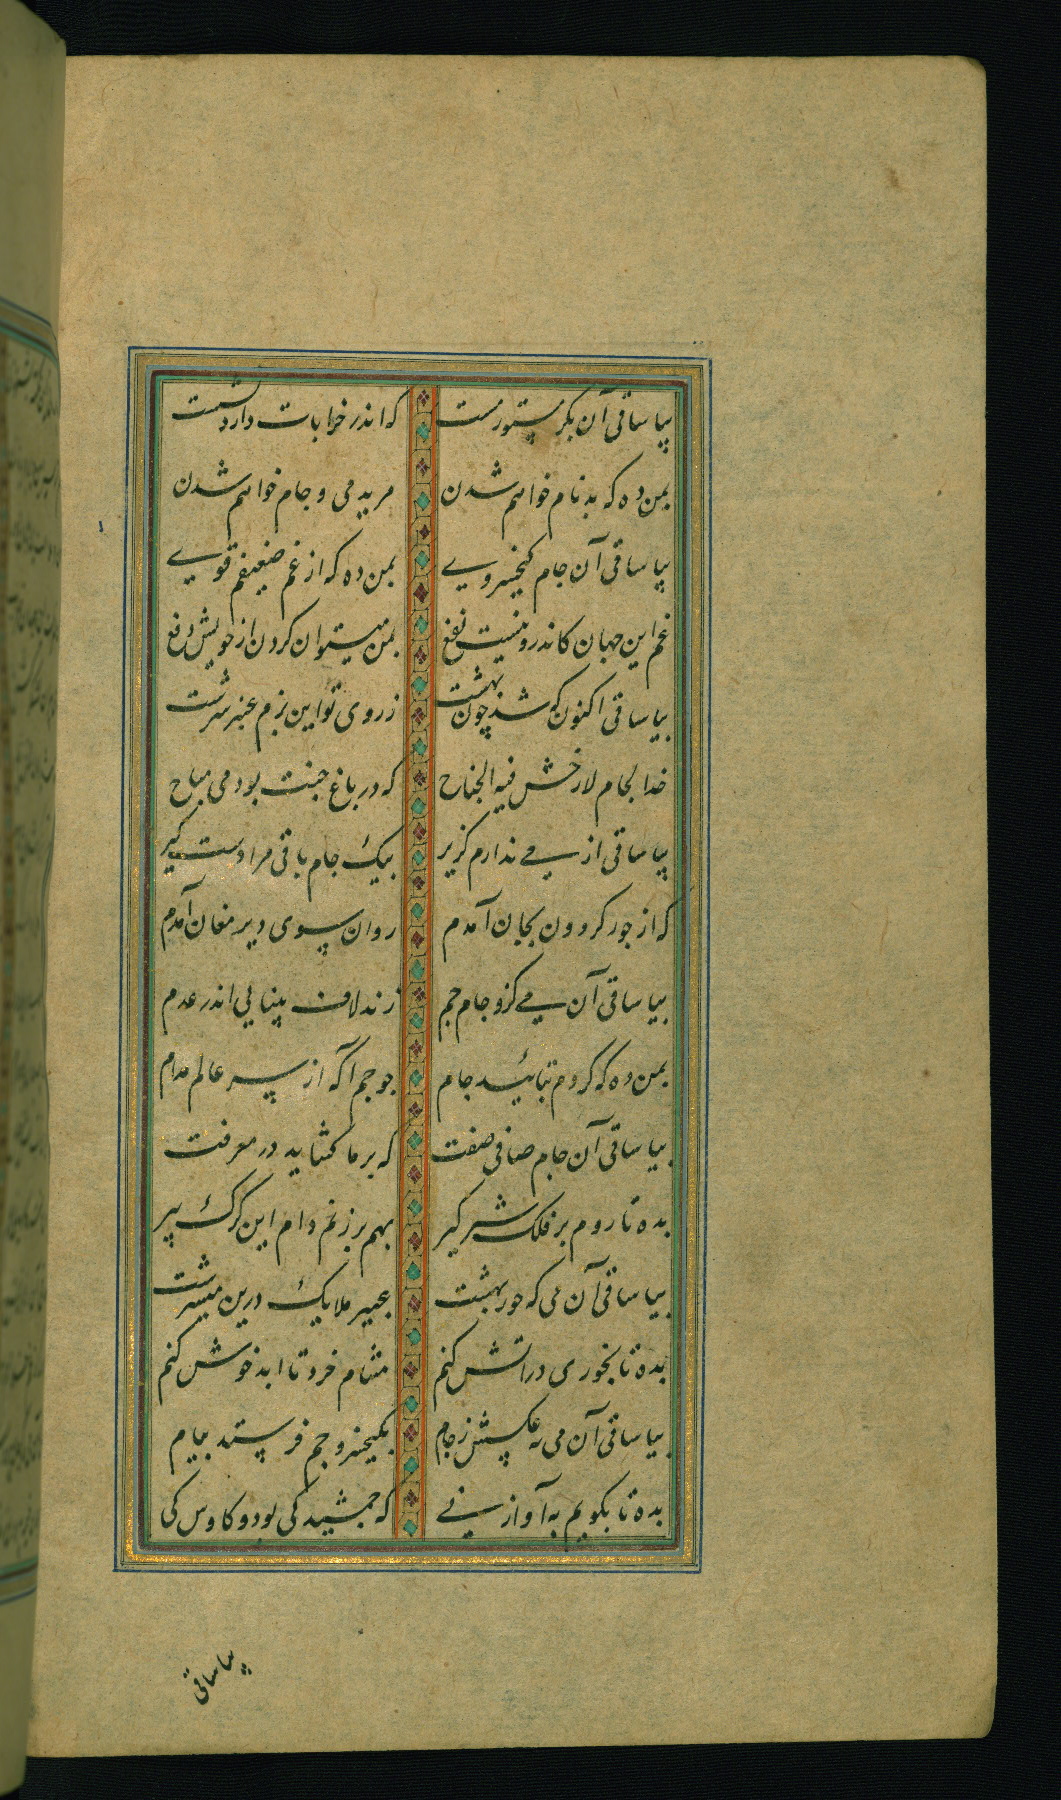 بیا ساقی آن بکر مستور مست که اندر خرابات دارد نشست
بمن ده که بدنام خواهم شدن مرید می و جام خواهم شدن
بیا ساقی آن جام کیخسروی بمن ده که از غم ضعیفم قوی
غم این جهان کاندرو نیست نفع بمن میتوان کردن از خویش دفع
بیا ساقی اکنون که شد چون بهشت ز روی تو این بزم عنبر سرشت
خذ الجام لا تخش فیه الجناح که در باغ جنت بود می مباح
بیا ساقی از می ندارم گزیر بیک جام باقی مرا دست گیر
که از جور گردون بجان آمدم روان سوی دیر مغان آمدم
بیا ساقی آن می کزو جام جم زند لاف بینایی اندر عدم
بمن ده که گردم بتائید جام چو جم آگه از سر عالم مدام
بیا ساقی آن جام صافی صفت که بر ما گشاید در معرفت
بده تا روم بر فلک شیر گیر بهم بر زنم دام این گرگ پیر
بیا ساقی آن می که حور بهشت عبیر ملایک درین می سرشت
بده تا بخوری در آتش کنم مشام خرد تا ابد خوش کنم
بیا ساقی آن می که عکسش ز جام بکیخسرو و جم فرستد پیام
بده تا بگویم به آواز نی که جمشید کی بود و کاوس کی
بیا ساقی